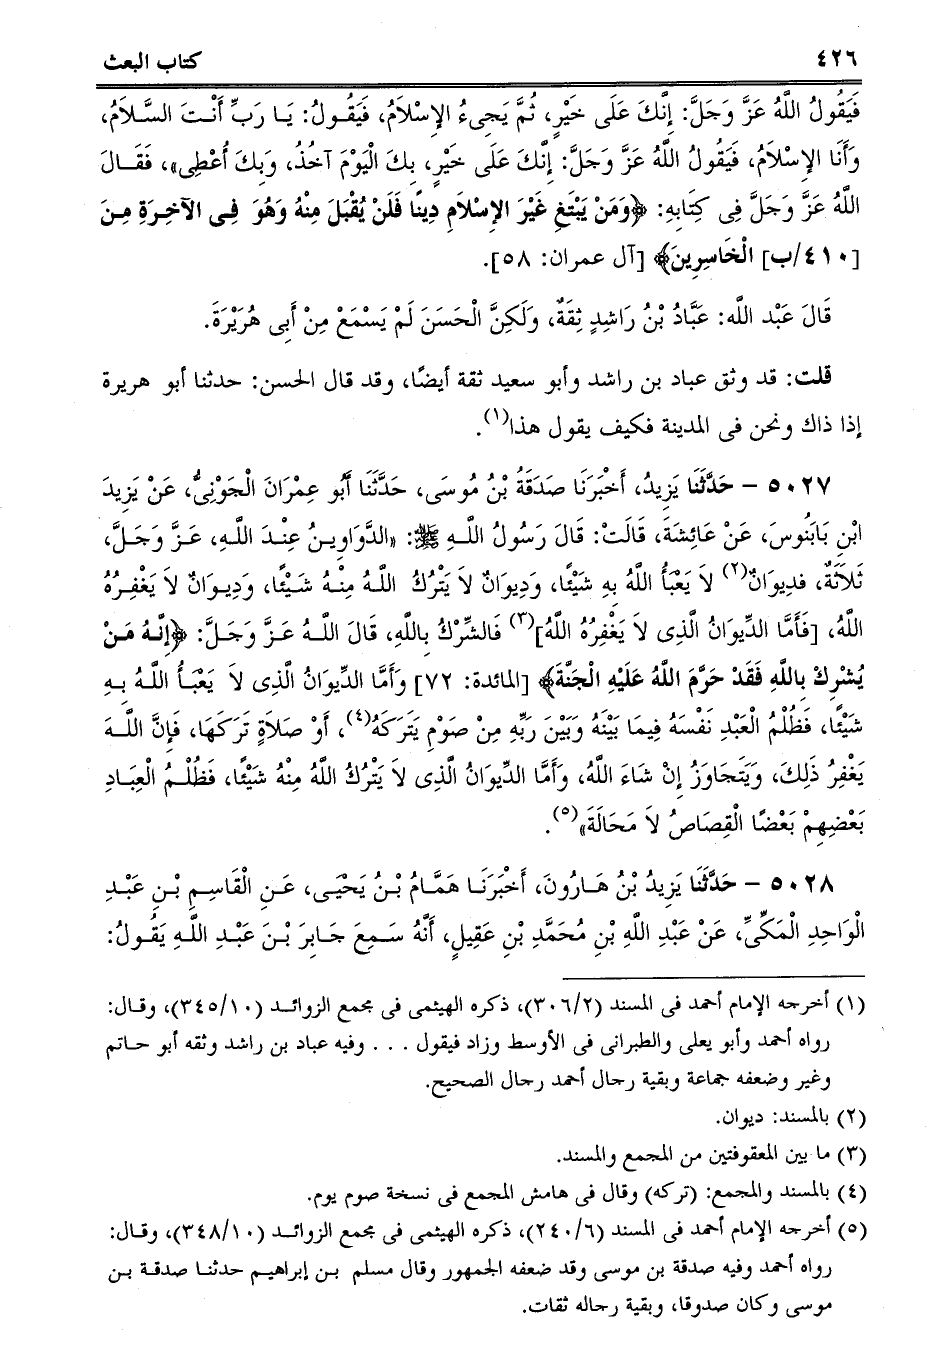 ٤٢٦
كتاب البعث
فَيَقُولُ اللَّهُ عَزَّ وَجَلَّ: إِنَّكَ عَلَى خَيْرٍ، ثُمَّ يَجِىءُ الإِسْلاَمُ، فَيَقُولُ: يَا رَبِّ أَنْتَ السَّلاَمُ،
وَأَنَا الإِسْلاَمُ، فَيَقُولُ اللَّهُ عَزَّ وَجَلَّ: إِنَّكَ عَلَى خَيْرٍ، بِكَ الْيَوْمَ آخُذُ، وَبِكَ أُعْطِى»، فَقَالَ
اللَّهُ عَزَّ وَجَلَّ فِى كِتَابِهِ: ﴿وَمَنْ يَبْتَغِ غَيْرَ الإِسْلاَمِ دِينًا فَلَنْ يُقْبَلَ مِنْهُ وَهُوَ فِى الآخِرَةِ مِنَ
[٤١٠/ب] الْخَاسِرِينَ﴾ [آل عمران: ٥٨].
قَالَ عَبْد اللَّه: عَبَّادُ بْنُ رَاشِدٍ ثِقَةٌ، وَلَكِنَّ الْحَسَنَ لَمْ يَسْمَعْ مِنْ أَبِى هُرَيْرَةَ.
قلت: قد وثق عباد بن راشد وأبو سعيد ثقة أيضًا، وقد قال الحسن: حدثنا أبو هريرة
إذا ذاك ونحن فى المدينة فكيف يقول هذا(١).
٥٠٢٧ - حَدَّثَنَا يَزِيدُ، أَخْبَرَنَا صَدَقَةُ بْنُ مُوسَى، حَدَّثَنَا أَبُو عِمْرَانَ الْجَوْنِىُّ، عَنْ يَزِيدَ
ابْنِ بَابَنُوسَ، عَنْ عَائِشَةَ، قَالَتْ: قَالَ رَسُولُ اللَّهِ ﷺ: «الدَّوَاوِينُ عِنْدَ اللَّهِ، عَزَّ وَجَلَّ،
ثَلاَثَةٌ، فديوَانٌ(٢) لاَ يَعْبَأُ اللَّهُ بِهِ شَيْئًا، وَدِيوَانٌ لاَ يَتْرُكُ اللَّهُ مِنْهُ شَيْئًا، وَدِيوَانٌ لاَ يَغْفِرُهُ
اللَّهُ، [فَأَمَّا الدِّيوَانُ الَّذِى لاَ يَغْفِرُهُ اللَّهُ](٣) فَالشِّرْكُ بِاللَّهِ، قَالَ اللَّهُ عَزَّ وَجَلَّ: ﴿إِنَّهُ مَنْ
يُشْرِكْ بِاللَّهِ فَقَدْ حَرَّمَ اللَّهُ عَلَيْهِ الْجَنَّةَ﴾ [المائدة: ٧٢] وَأَمَّا الدِّيوَانُ الَّذِى لاَ يَعْبَأُ اللَّهُ بِهِ
شَيْئًا، فَظُلْمُ الْعَبْدِ نَفْسَهُ فِيمَا بَيْنَهُ وَبَيْنَ رَبِّهِ مِنْ صَوْمٍ يَتَرَكَهُ(٤)، أَوْ صَلاَةٍ تَرَكَهَا، فَإِنَّ اللَّهَ
يَغْفِرُ ذَلِكَ، وَيَتَجَاوَزُ إِنْ شَاءَ اللَّهُ، وَأَمَّا الدِّيوَانُ الَّذِى لاَ يَتْرُكُ اللَّهُ مِنْهُ شَيْئًا، فَظُلْمُ الْعِبَادِ
بَعْضِهِمْ بَعْضًا الْقِصَاصُ لاَ مَحَالَةَ»(٥).
٥٠٢٨ - حَدَّثَنَا يَزِيدُ بْنُ هَارُونَ، أَخْبَرَنَا هَمَّامُ بْنُ يَحْيَى، عَنِ الْقَاسِمِ بْنِ عَبْدِ
الْوَاحِدِ الْمَكِّىِّ، عَنْ عَبْدِ اللَّهِ بْنِ مُحَمَّدِ بْنِ عَقِيلٍ، أَنَّهُ سَمِعَ جَابِرَ بْنَ عَبْدِ اللَّهِ يَقُولُ:
(١) أخرجه الإمام أحمد فى المسند (٣٠٦/٢)، ذكره الهيثمى فى مجمع الزوائد (٣٤٥/١٠)، وقال:
رواه أحمد وأبو يعلى والطبرانى فى الأوسط وزاد فيقول . . . وفيه عباد بن راشد وثقه أبو حاتم
وغير وضعفه جماعة وبقية رجال أحمد رجال الصحيح.
(٢) بالمسند: ديوان.
(٣) ما بين المعقوفتين من المجمع والمسند.
(٤) بالمسند والمجمع: (تركه) وقال فى هامش المجمع فى نسخة صوم يوم.
(٥) أخرجه الإمام أحمد فى المسند (٢٤٠/٦)، ذكره الهيثمى فى مجمع الزوائد (٣٤٨/١٠)، وقال:
رواه أحمد وفيه صدقة بن موسى وقد ضعفه الجمهور وقال مسلم بن إبراهيم حدثنا صدقة بن
موسى وكان صدوقا، وبقية رجاله ثقات.